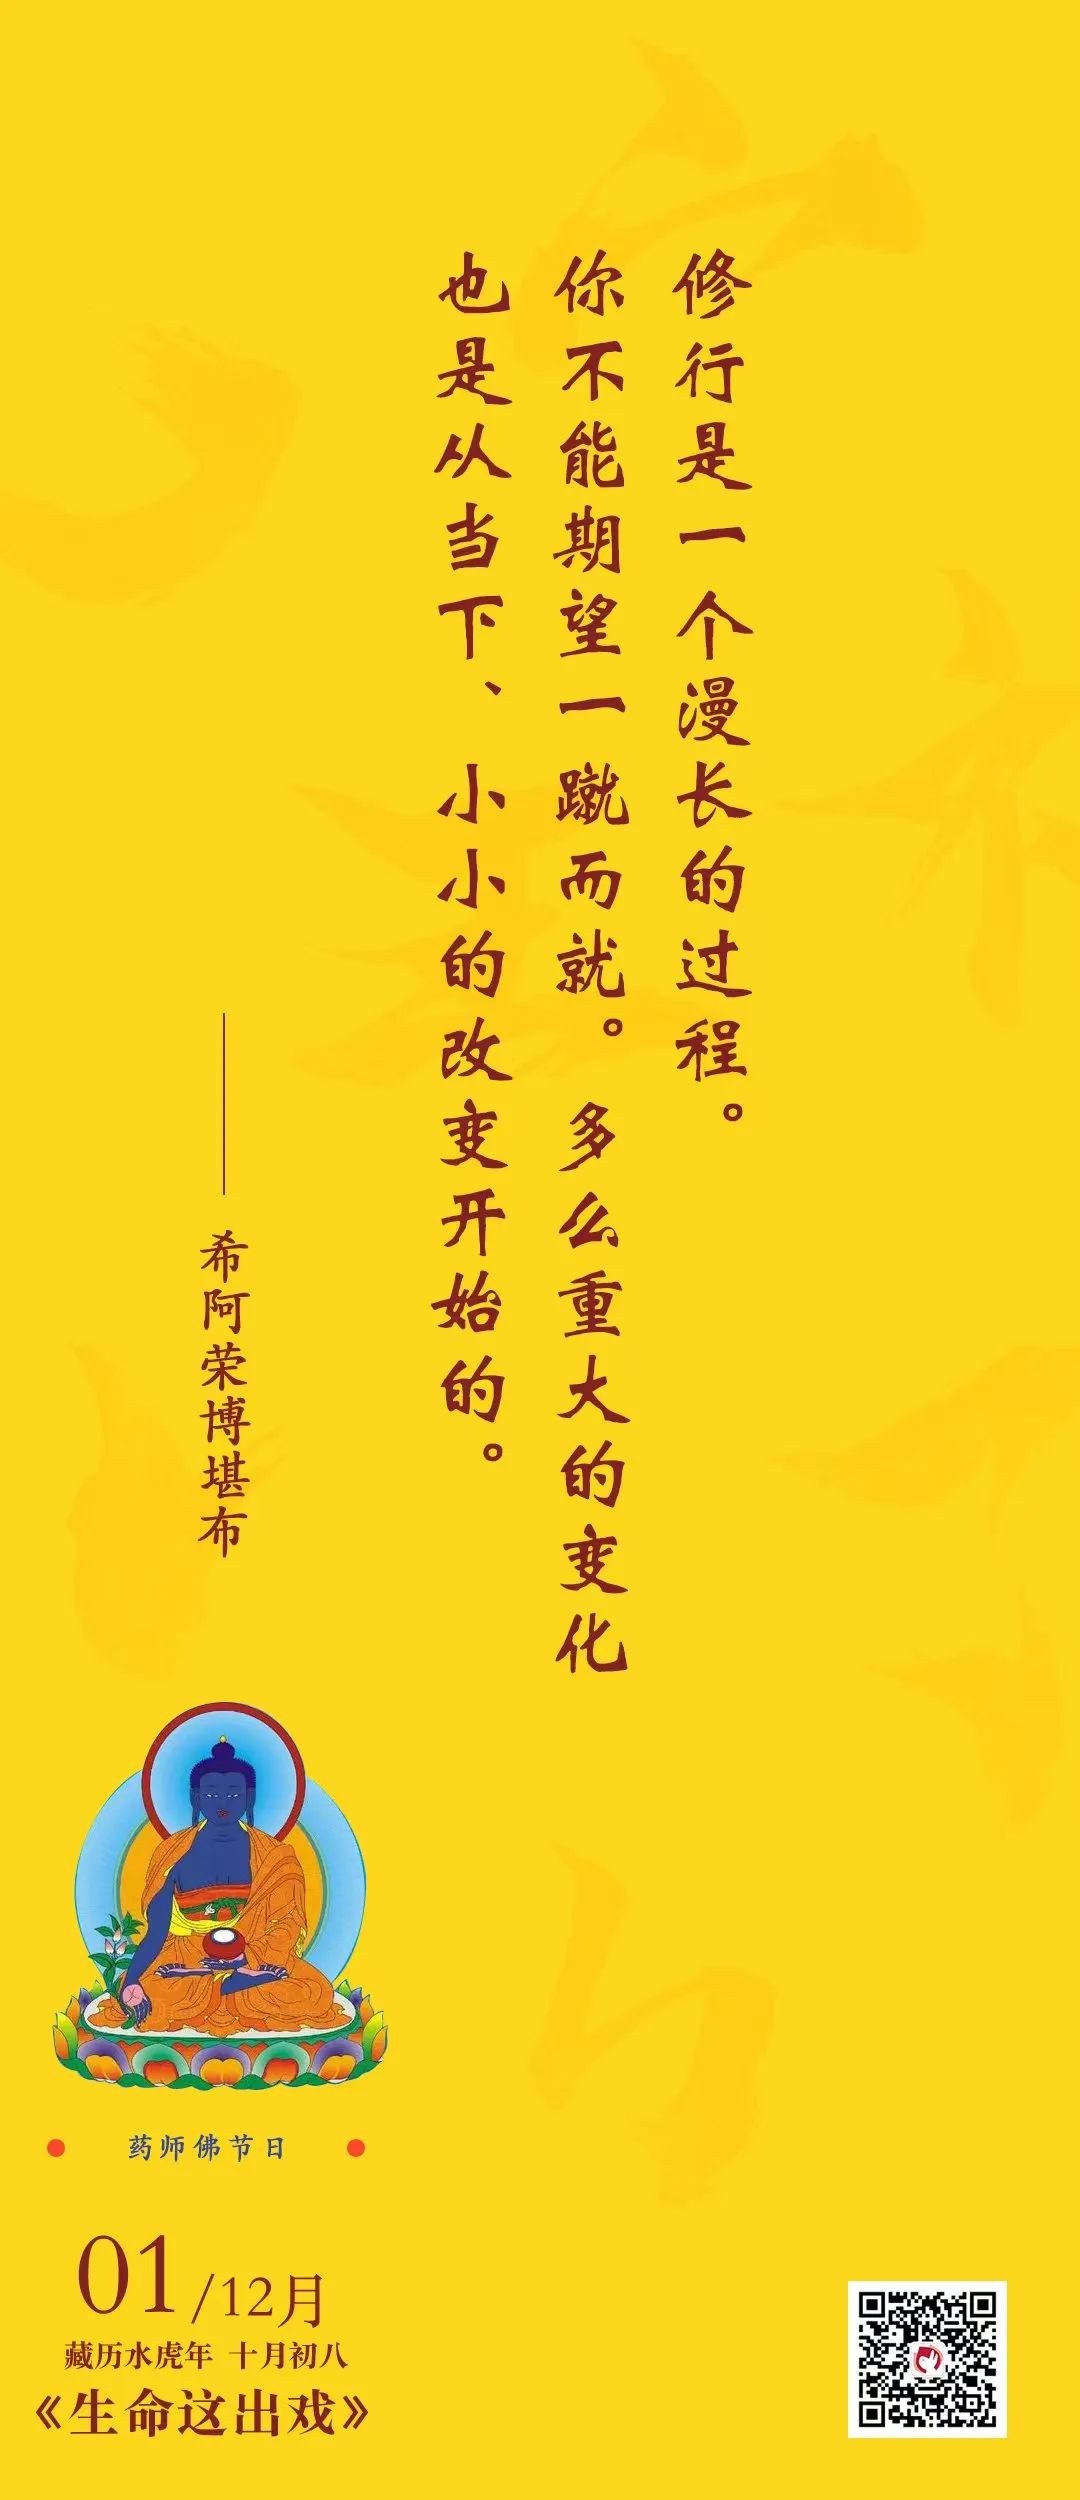 修行是一个漫长的过程。
你不能期望一蹴而就。多么重大的变化
也是从当下、小小的改变开始的。
——希阿荣博堪布
药师佛节日
01/12月
藏历水虎年 十月初八
《生命这出戏》